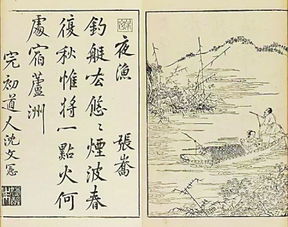 夜漁 張喬
釣艇去悠〻煙波春
復秋惟將一點火何
處宿蘆洲
完初道人沈文憲